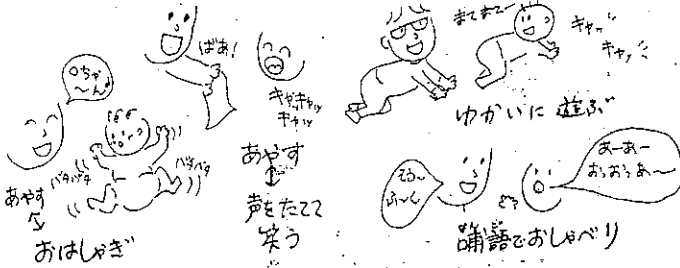 〇ちゃ
〜ん♪
バタバタ
バタバタ
あやす
↕
おはしゃぎ
ばあ!
キャッキャッ
キャッ
あやす
↕
声をたてて
笑う
まてまてー
キャッ
キャッ
ゆかいに遊ぶ
そう〜
ふ〜ん
あーあー
おぅおぅあ〜
喃語でおしゃべり